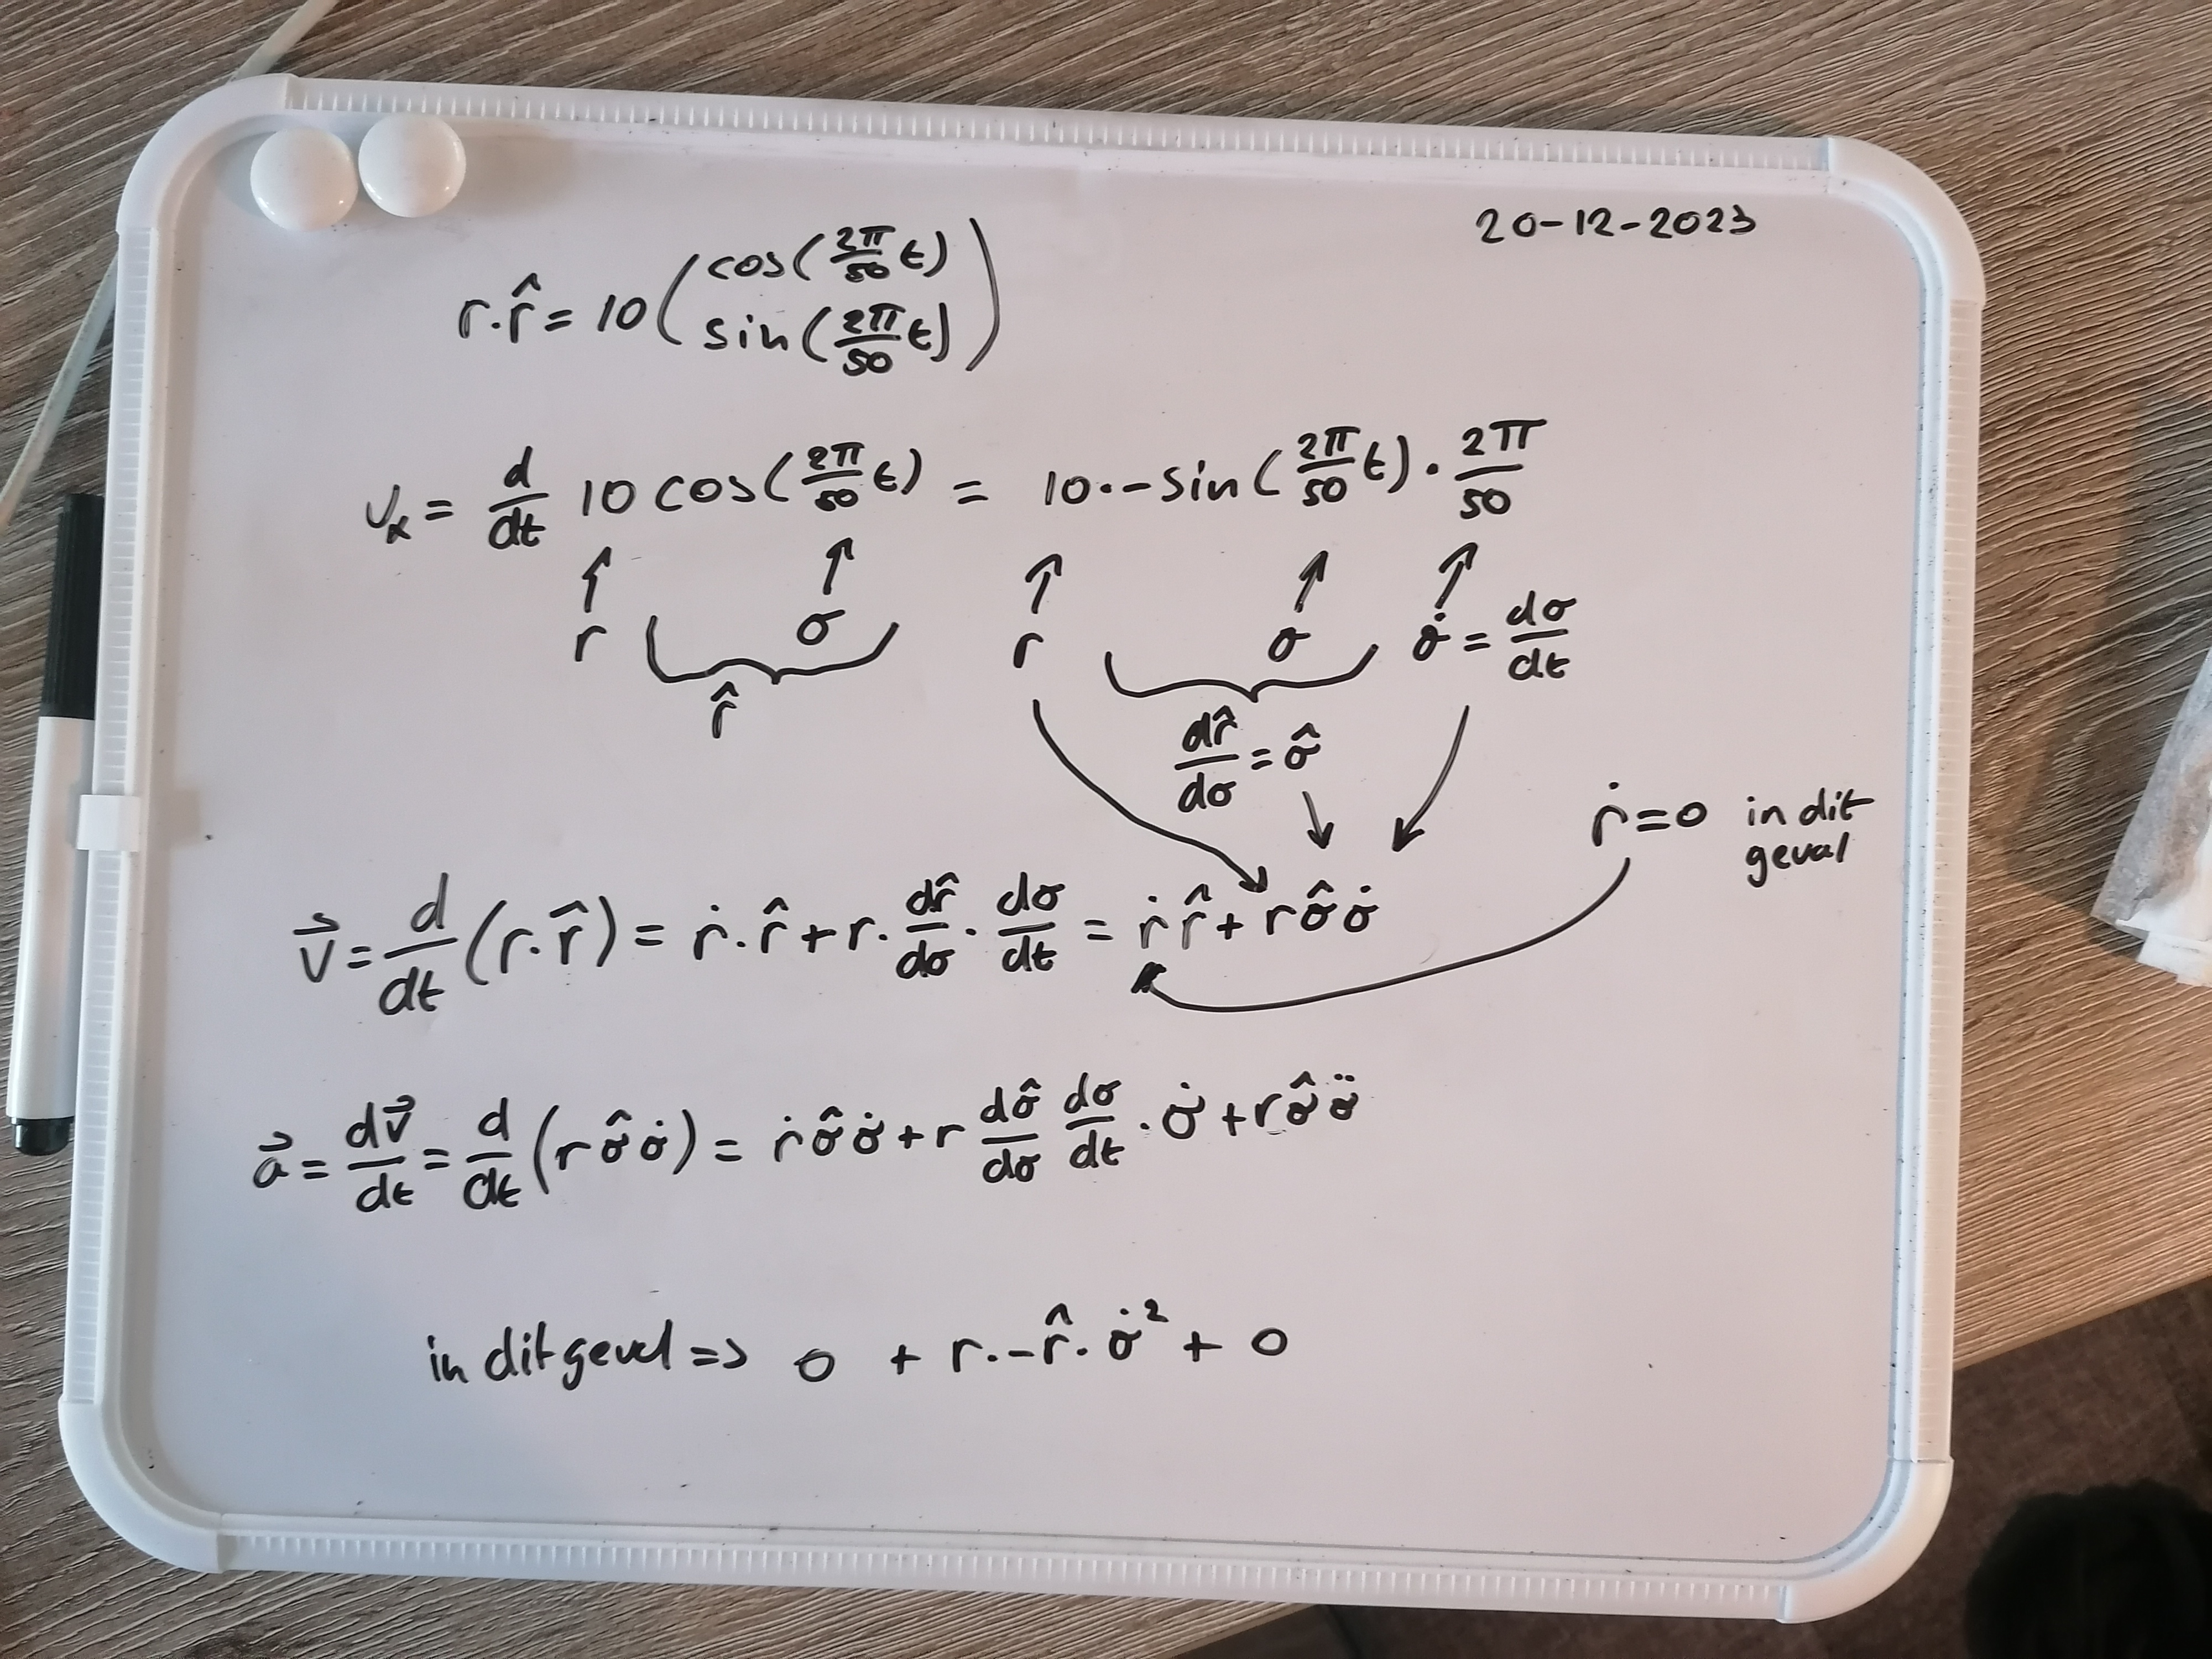 20-12-2023
r·r̂ = 10 ( cos(2π/50 t)
sin(2π/50 t) )
vₓ = d/dt 10 cos(2π/50 t) = 10·-sin(2π/50 t) · 2π/50
r σ r σ σ̇ = dσ/dt
r̂
dr̂/dσ = σ̂
ṙ = 0 in dit
geval
v⃗ = d/dt (r·r̂) = ṙ·r̂ + r· dr̂/dσ · dσ/dt = ṙr̂ + rσ̂σ̇
a⃗ = dv⃗/dt = d/dt (rσ̂σ̇) = ṙσ̂σ̇ + r dσ̂/dσ dσ/dt · σ̇ + rσ̂σ̈
in dit geval => 0 + r·-r̂·σ̇² + 0